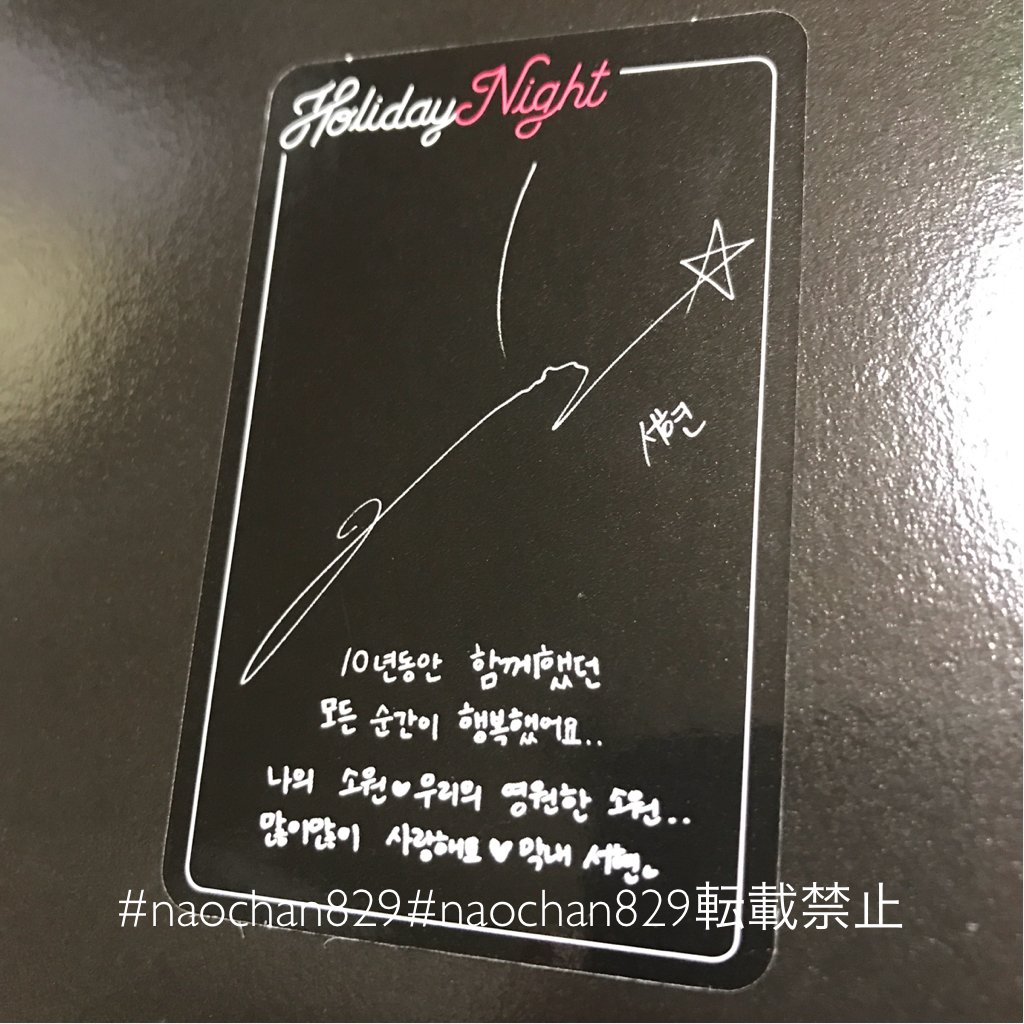 Holiday Night
서현
10년동안 함께했던
모든 순간이 행복했어요..
나의 소원♥우리의 영원한 소원..
많이많이 사랑해요♥막내 서현
#naochan829#naochan829転載禁止